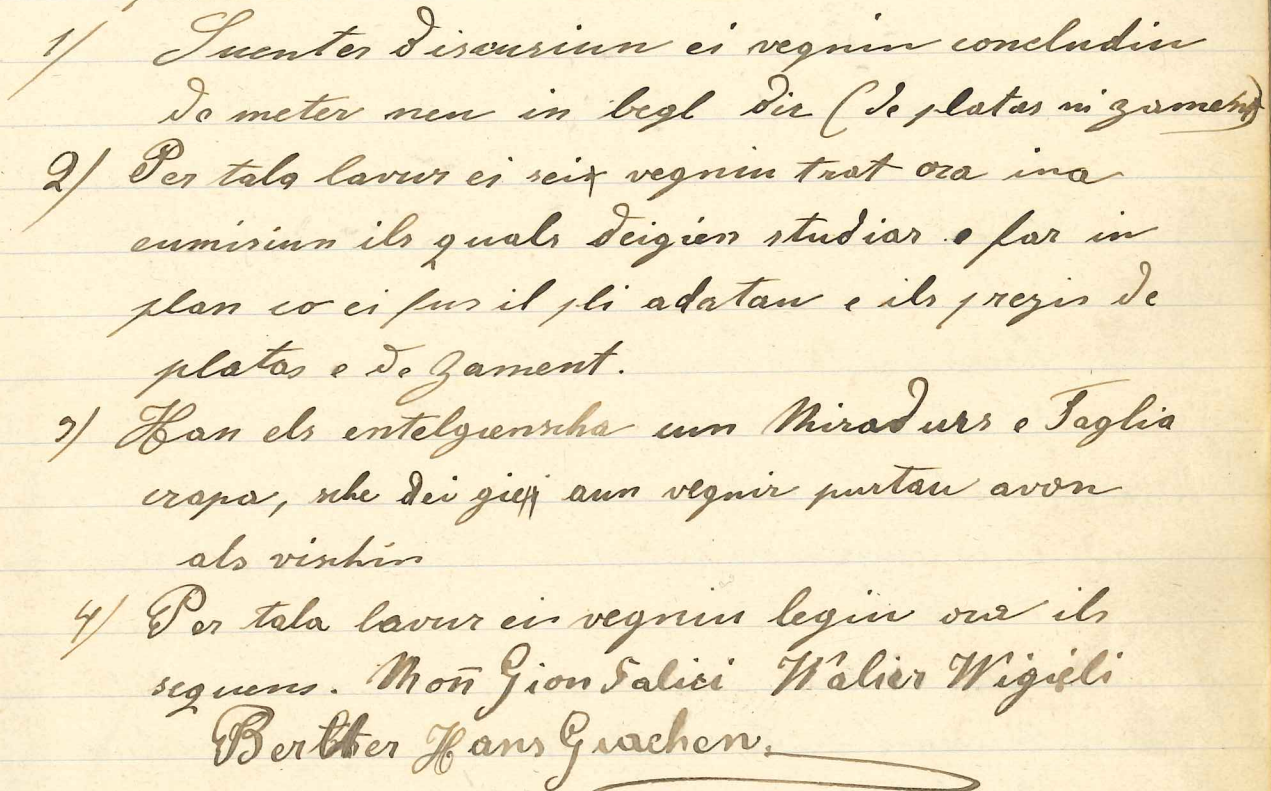 1/ Suenter discusiun ei vegniu concludiu
de meter neu in begl dir (de platas ni zament)
2/ Per tala lavur ei sei vegniu trat ora ina
cumisiun ils quals deigien studiar e far in
plan co ei fus il pli adatau e ils prezis de
platas e de zament.
3/ Han els entelgienscha cun Miradurs e Taglia
crapa, sche dei gie aun vegnir purtau avon
als vischin
4/ Per tala lavur ein vegniu legiu ora ils
sequens. Moñ Gion Falici Walier Wigieli
Berther Hans Giachen.